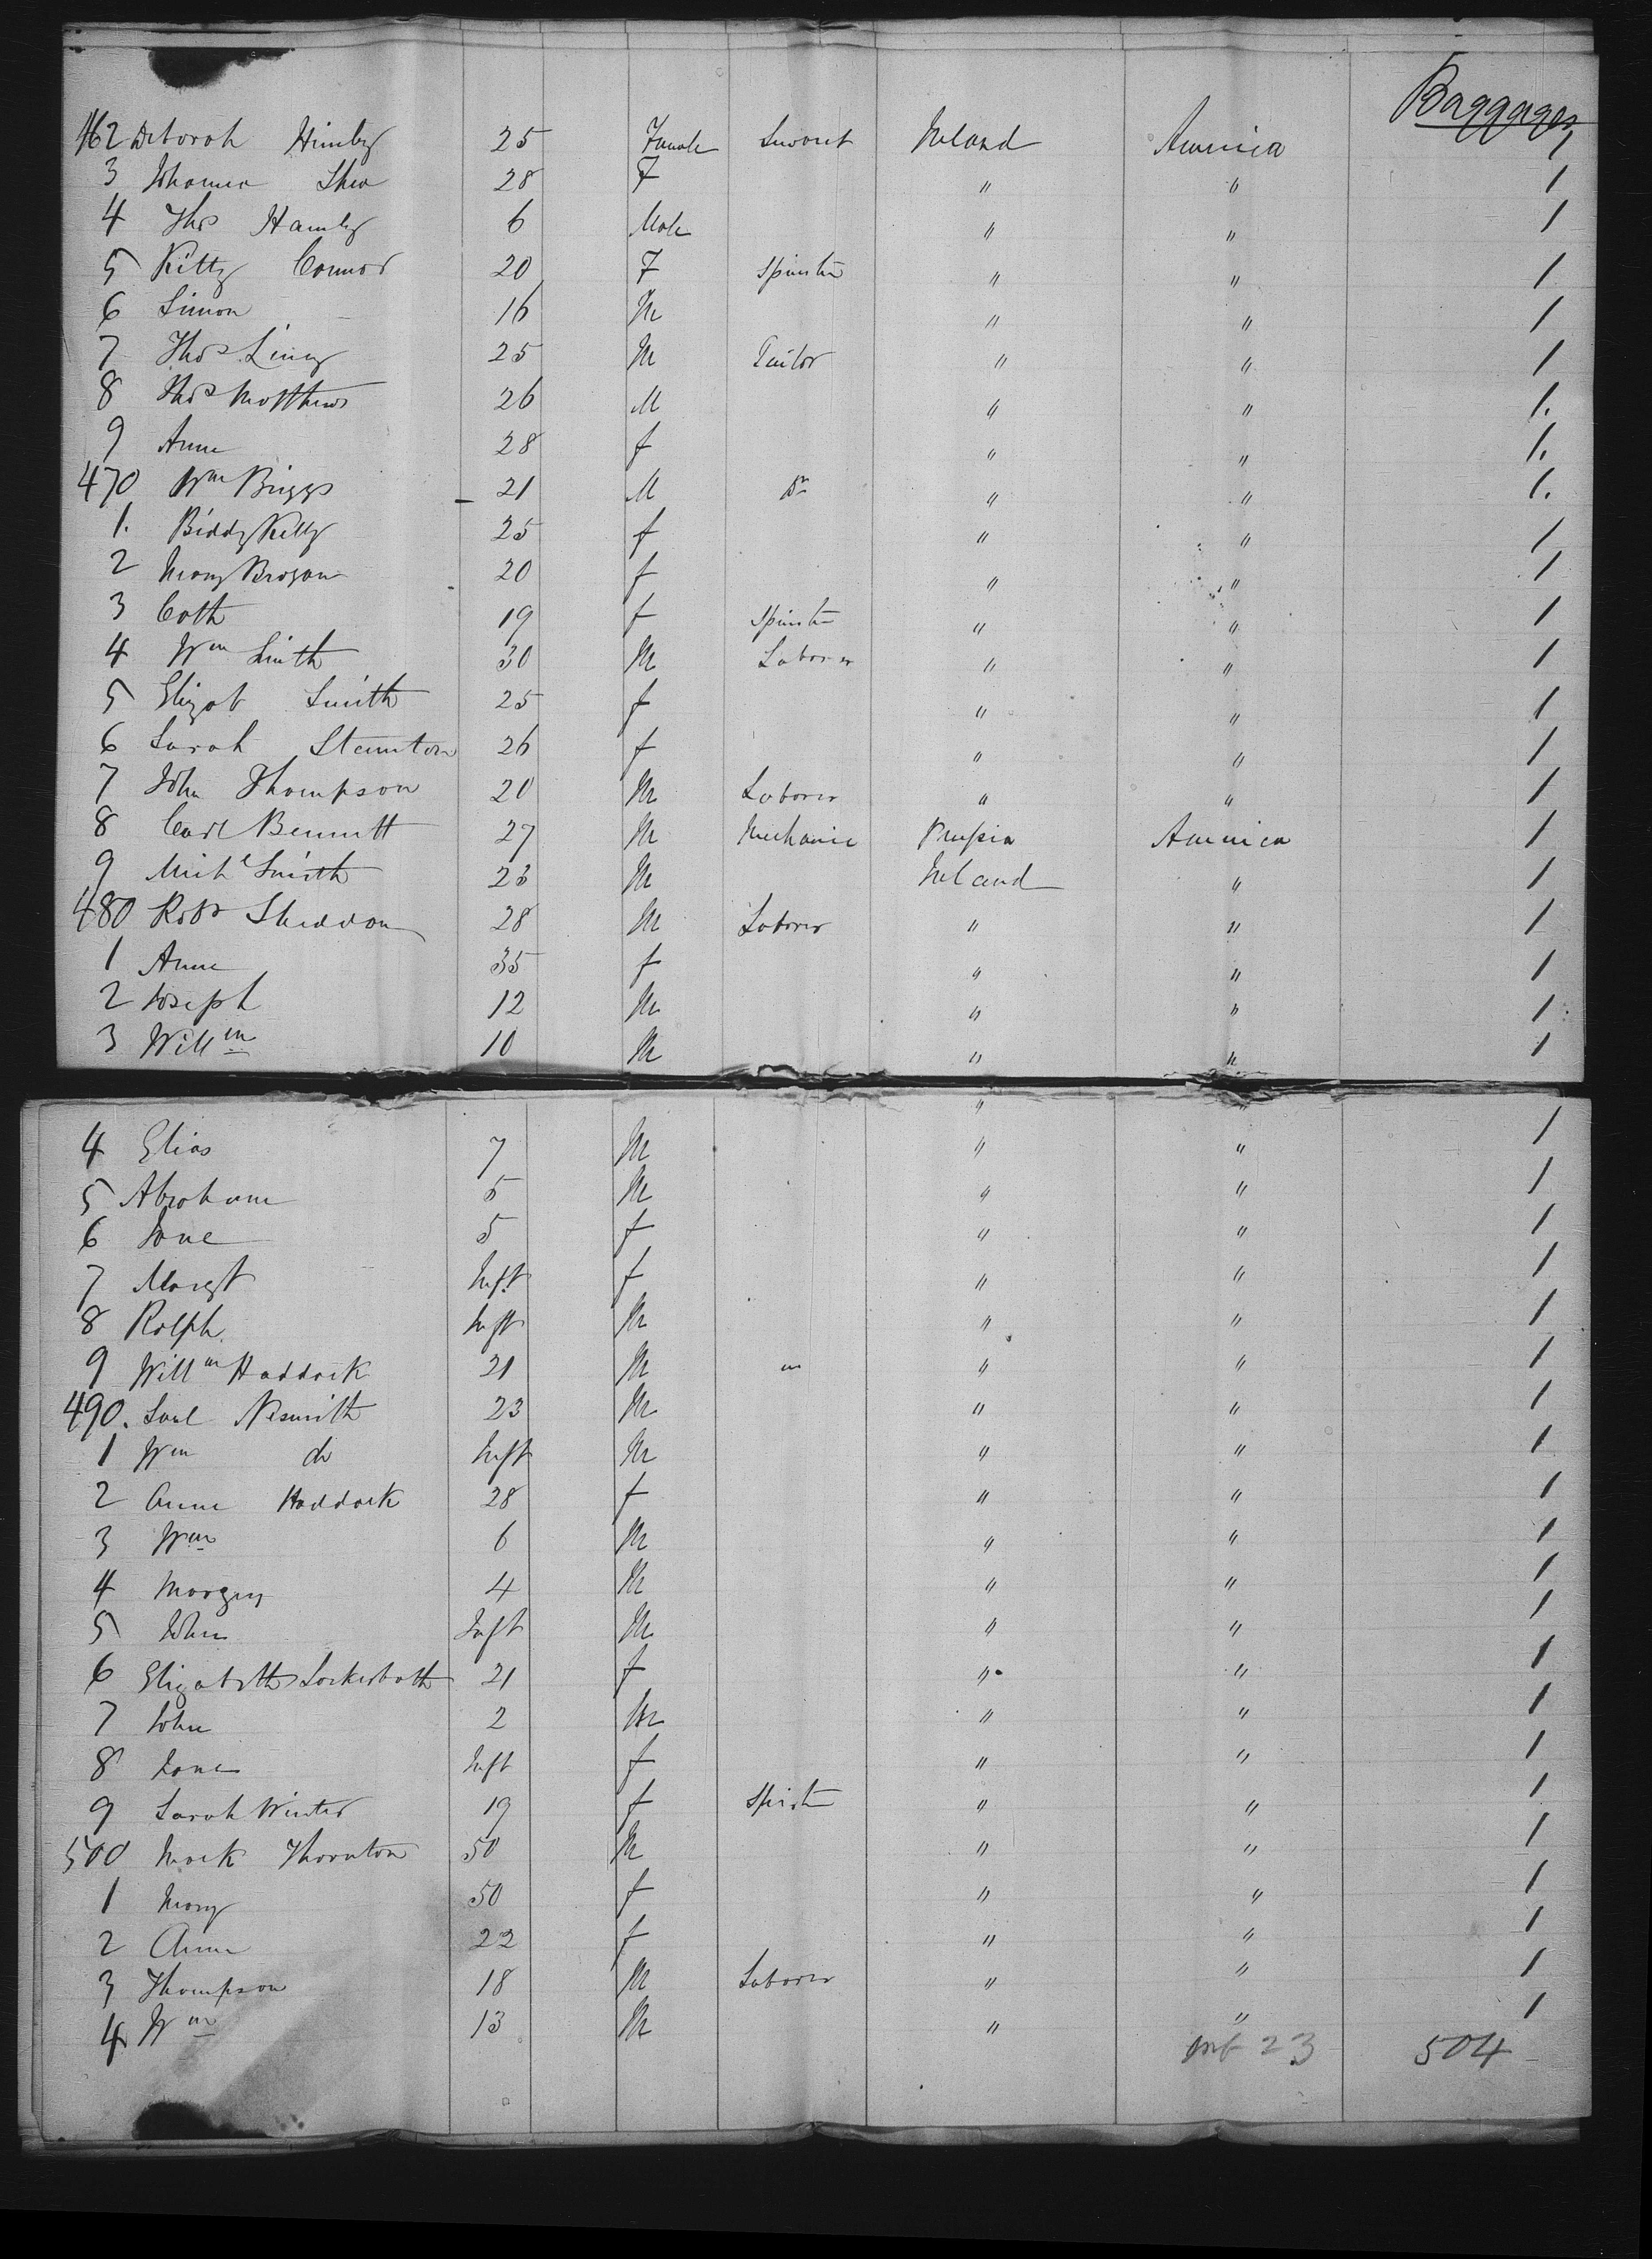 Baggages
462 Deborah Himley 25 Female Servant Ireland America 1
3 Johanna Shea 28 F " " 1
4 Thos Hamly 6 Male " " 1
5 Kitty Connor 20 F Spinster " " 1
6 Simon 16 M " " 1
7 Thos Liney 25 M Tailor " " 1
8 Thos Matthews 26 M " " 1.
9 Anne 28 f " " 1.
470 Wm Briggs 21 M Do " " 1.
1. Biddy Kelly 25 f " " 1
2 Mary Brogan 20 f " " 1
3 Cath 19 f Spinster " " 1
4 Wm Smith 30 M Laborer " " 1
5 Elizab Smith 25 f " " 1
6 Sarah Staunton 26 f " " 1
7 John Thompson 20 M Laborer " " 1
8 Carl Bennett 27 M Mechanic Prussia America 1
9 Michl Smith 23 M Ireland " 1
480 Robt Sheddon 28 M Laborer " " 1
1 Anne 35 f " " 1
2 Joseph 12 M " " 1
3 Willm 10 M " " 1
" "
4 Elias 7 M " " 1
5 Abraham 5 M " " 1
6 Jane 5 f " " 1
7 Margt Inft f " " 1
8 Ralph Inft M " " 1
9 Willm Haddock 21 M " " " 1
490. Saml Nesmith 23 M " " 1
1 Wm do Inft M " " 1
2 Anne Haddock 28 f " " 1
3 Wm 6 M " " 1
4 4 M " " 1
5 John Inft M " " 1
6 Elizabeth 21 f " " 1
7 John 2 M " " 1
8 Jane Inft f " " 1
9 Sarah Winter 19 f Spinster " " 1
500 Mark Thornton 50 M " " 1
1 Mary 50 f " " 1
2 Anne 22 f " " 1
3 Thompson 18 M Laborer " " 1
4 Wm 13 M " " 1
inf 23 504